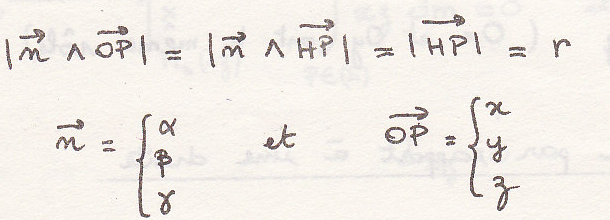 |n⃗ ∧ OP⃗| = |n⃗ ∧ HP⃗| = |HP⃗| = r
n⃗ = { α β γ et OP⃗ = { x y z